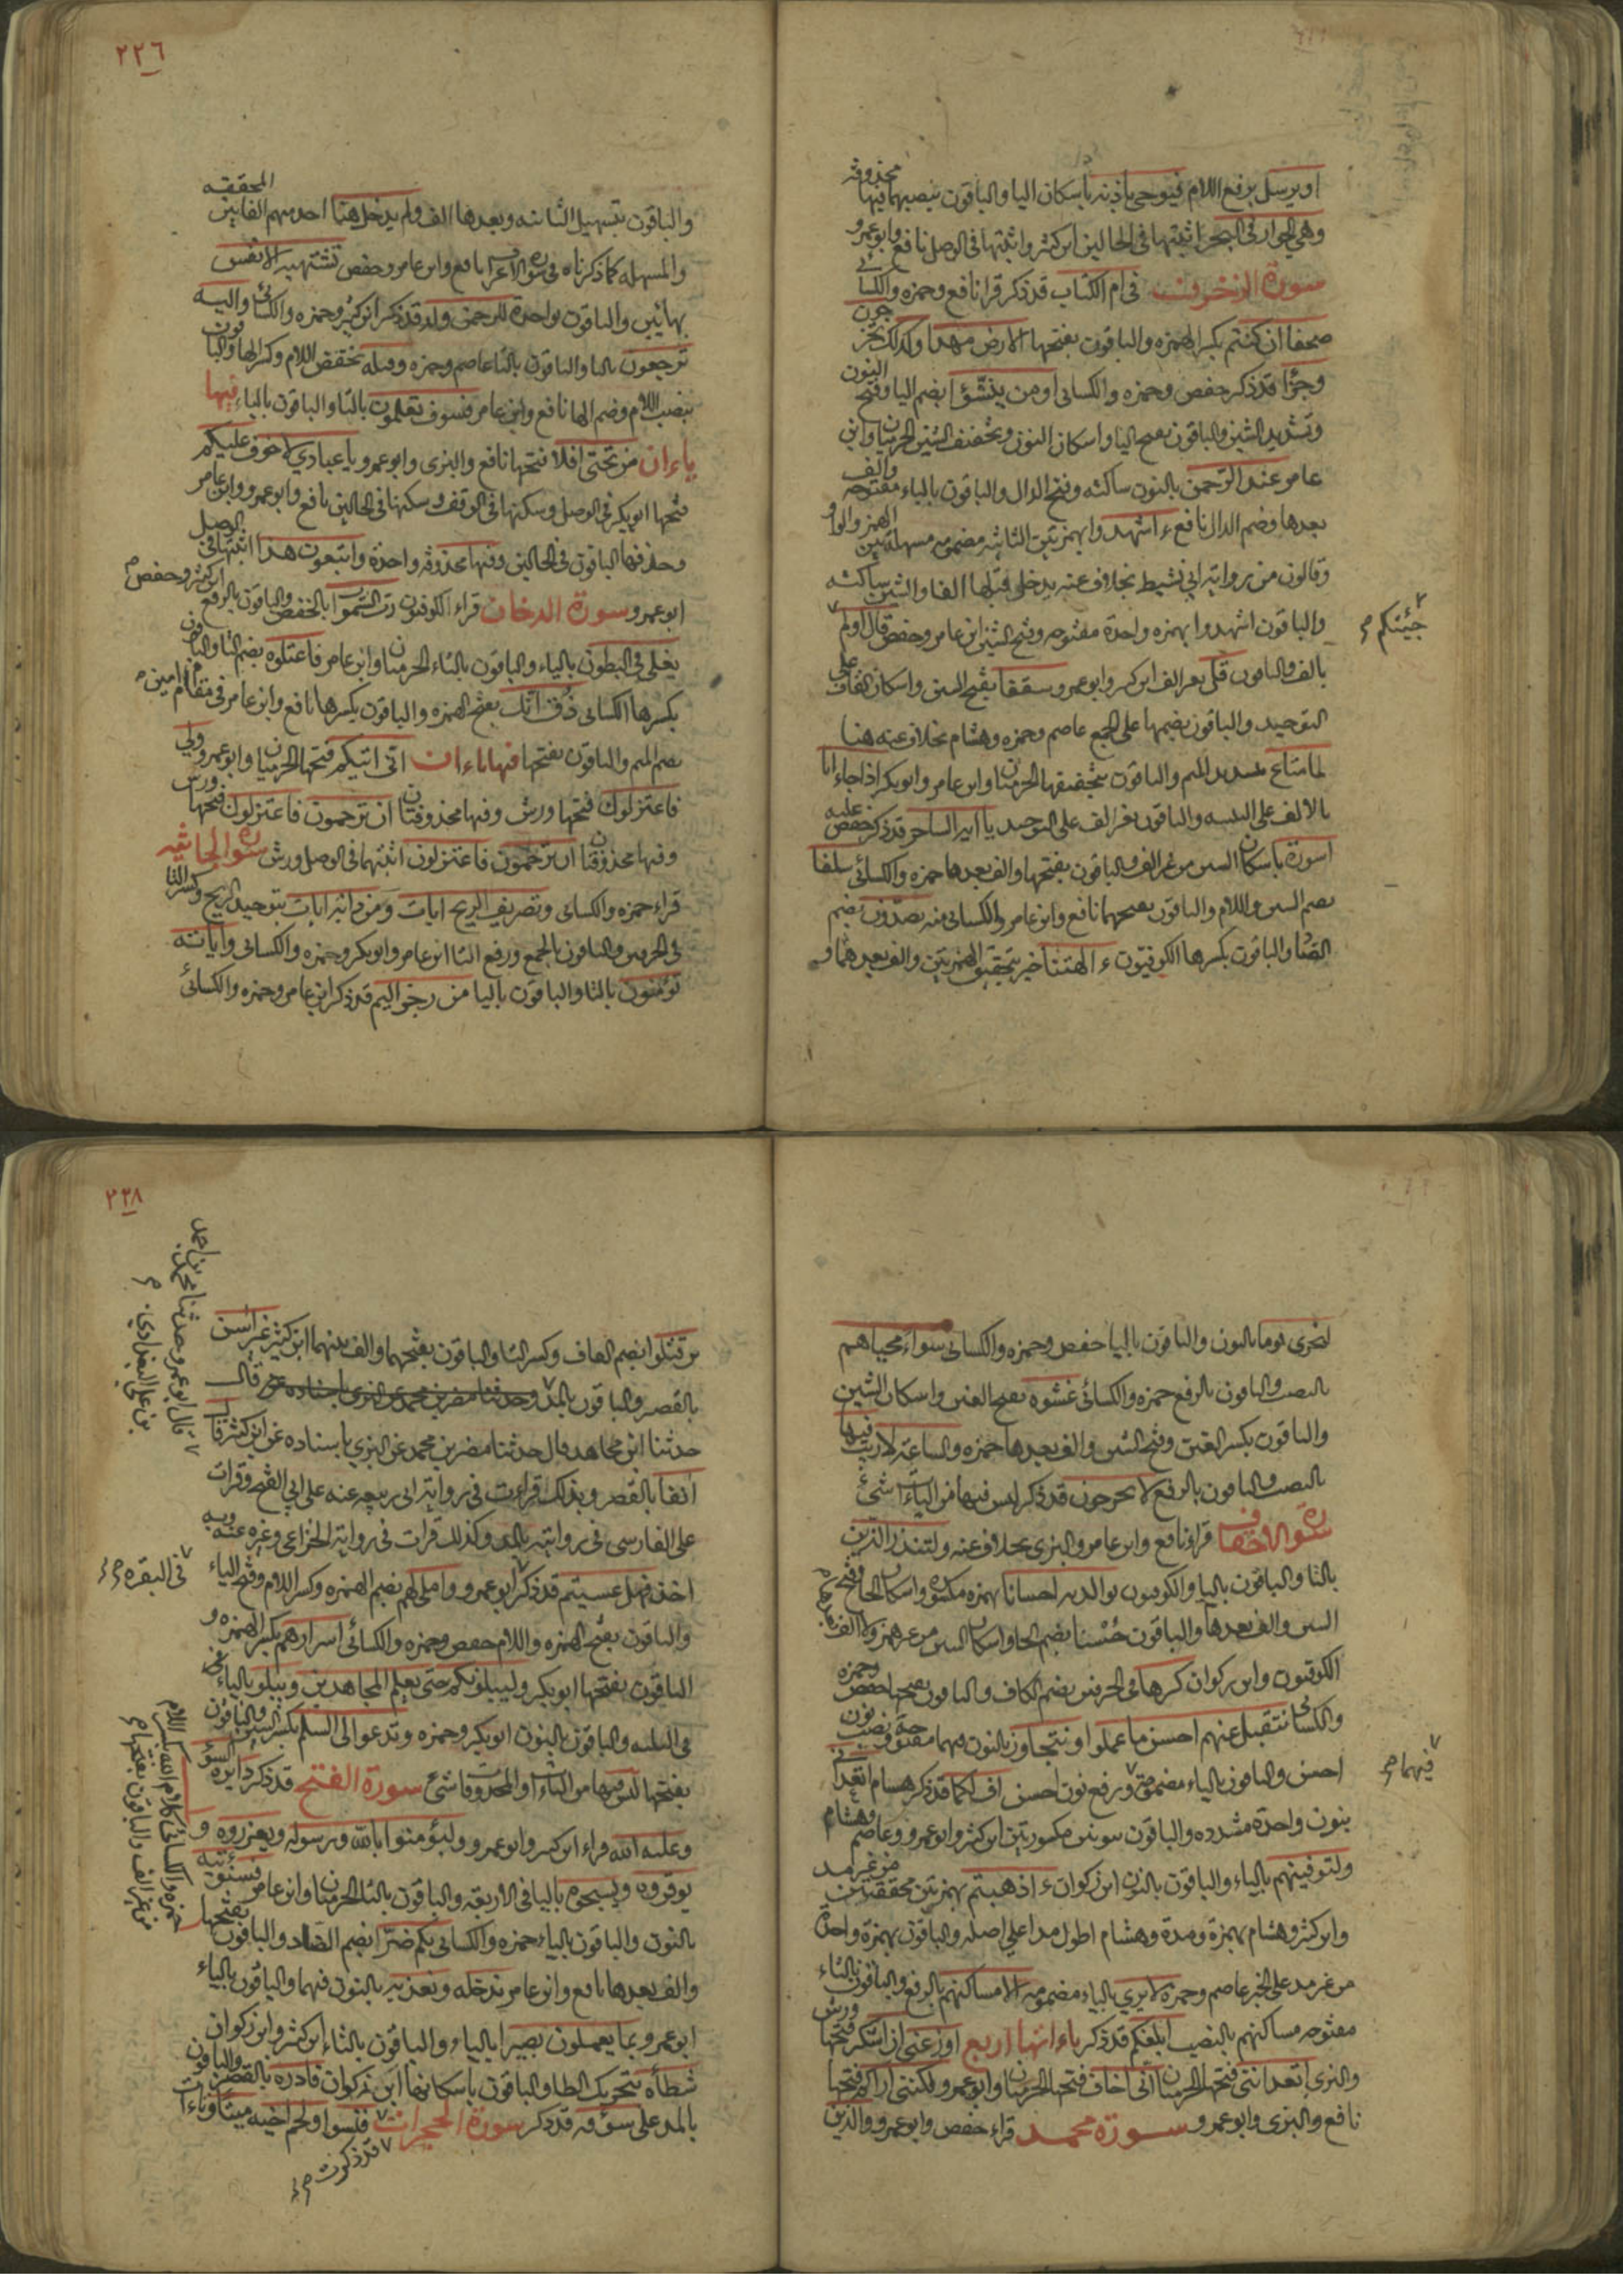 او يرسل برفع اللام فيوحي باذنه باسكان اليا والباقون بنصبهما فيها محذوفة
وهي الجوار في البحر اثبتها في الحالين ابن كثير واثبتها في الوصل نافع وابو عمرو
سورة الزخرف في ام الكتاب قد ذكر قرا نافع وحمزه والكسائي
صفحا ان كنتم بكسر الهمزه والباقون بفتحها الارض مهدا وكذلك تخرجون
وجزؤا قد ذكر حفص وحمزه والكسائى اومن ينشؤا بضم اليا وفتح النون
وتشديد الشين والباقون بفتح اليا واسكان النون وتخفيف الشين الحرميان وابن
عامر عند الرحمن بالنون ساكنه وفتح الدال والباقون بالباء مفتوحه والف
بعدها وضم الدال نافع ءاشهدوا بهمزتين الثانيه مضمومه مسهلة بين الهمز والواو
وقالون من رواية ابي نشيط بخلاف عنه يدخل قبلها الفا والشين ساكنه
والباقون اشهدوا بهمزه واحدة مفتوحه وفتح الشين ابن عامر وحفص قال اولم
جئتكم
بالف والباقون قل بغير الف ابن كثير وابو عمرو سقفا بفتح السين واسكان القاف على
التوحيد والباقون بضمهما على الجمع عاصم وحمزه وهشام بخلاف عنه هنا
لما متاع بتشديد الميم والباقون بتخفيفها الحرميان وابن عامر وابو بكر اذا جاءانا
بالالف على التثنيه والباقون بغير الف على التوحيد يا ايه الساحر قد ذكر حفص عليه
اسورة باسكان السين من غير الف والباقون بفتحها والف بعدها حمزه والكسائي سلفا
بضم السين واللام والباقون بفتحهما نافع وابن عامر والكسائى منه يصدون بضم
الصاد والباقون بكسرها الكوفيون ءالهتنا خير بتحقيق الهمزتين والف بعدهما و
٢٢٦
والباقون بتسهيل الثانيه وبعدها الف ولم يدخل هنا احد منهم الفا بين المحققه
والمسهله كما ذكرناه في سورة الاعراف نافع وابن عامر وحفص تشتهيه الانفس
بهائين والباقون بواحدة للرحمن ولد قد ذكر ابن كثير وحمزه والكسائي واليه
ترجعون باليا والباقون بالتا عاصم وحمزه وقيله بخفض اللام وكسر الها والباقون
بنصب اللام وضم الها نافع وابن عامر فسوف تعلمون بالتا والباقون بالياء فيها
ياءان من تحتي افلا فتحها نافع والبزى وابو عمرو يا عبادي لا خوف عليكم
فتحها ابو بكر في الوصل وسكنها في الوقف وسكنها في الحالين نافع وابو عمرو وابن عامر
وحذفها الباقون في الحالين وفيها محذوفه واحدة واتبعون هذا اثبتها في الوصل
ابو عمرو سورة الدخان قراء الكوفيون رب السموات بالخفض والباقون بالرفع ابن كثير وحفص
يغلي في البطون بالياء والباقون بالتاء الحرميان وابن عامر فاعتلوه بضم التا والباقون
بكسرها الكسائى ذق انك بفتح الهمزه والباقون بكسرها نافع وابن عامر في مقام امين
بضم الميم والباقون بفتحها فيها ياءان اني اتيكم فتحها الحرميان وابو عمرو ولي
فاعتزلون فتحها ورش وفيها محذوفتان ان ترجمون فاعتزلون فتحها ورش
وفيها محذوفتان ان ترجمون فاعتزلون اثبتهما في الوصل ورش سورة الجاثيه
قراء حمزه والكسائى وتصريف الريح ايات ومن دابة ايات بتوحيد الريح وكسر التا
في الحرفين والباقون بالجمع ورفع التا ابن عامر وابو بكر وحمزه والكسائى واياته
تؤمنون بالتا والباقون باليا من رجز اليم قد ذكر ابن عامر وحمزه والكسائى
لنجزى قوما بالنون والباقون باليا حفص وحمزه والكسائى سواء محياهم
بالنصب والباقون بالرفع حمزه والكسائى غشوه بفتح الغين واسكان الشين
والباقون بكسر الغين وفتح الشين والف بعدها حمزه والساعة لا ريب فيها
بالنصب والباقون بالرفع لا يخرجون قد ذكر ليس فيها من الياءات شئ
سورة الاحقاف قراء نافع وابن عامر والبزى بخلاف عنه ولتنذر الذين
بالتا والباقون باليا والكوفيون بوالديه احسانا بهمزه مكسوره واسكان الحا وفتح
السين والف بعدها والباقون حسنا بضم الحا واسكان السين من غير همز ولا الف
الكوفيون وابن ذكوان كرها في الحرفين بضم الكاف والباقون بفتحها حفص وحمزه
والكسائى نتقبل عنهم احسن ما عملوا ونتجاوز بالنون فيهما مفتوحة ونصب نون
احسن والباقون بالياء مضمومة ورفع نون احسن اف لكما قد ذكر هشام اتعداني
فيهما
بنون واحدة مشدده والباقون بنونين مكسورتين ابن كثير وابو عمرو وعاصم وهشام
ولنوفينهم بالياء والباقون بالنون ابن ذكوان ءاذهبتم بهمزتين محققتين من غير مد
وابن كثير وهشام بهمزة ومدة وهشام اطول مدا على اصله والباقون بهمزة واحدة
من غير مد على الخبر عاصم وحمزه لا يري بالياء مضمومه الا مساكنهم بالرفع والباقون بالتاء
مفتوحه مساكنهم بالنصب ابلغكم قد ذكر ياءاتها اربع اوزعني ان اشكر فتحها ورش
والبزى اتعدانني فتحها الحرميان اني اخاف فتحها الحرميان وابو عمرو ولكنني اراكم فتحها
نافع والبزى وابو عمرو سورة محمد قراء حفص وابو عمرو والذين
٢٢٨
قتلوا بضم القاف وكسر التا والباقون بفتحهما والف بينهما ابن كثير غير اسن
بالقصر والباقون بالمد وحدثنا مضر بن محمد عن البزى باسناده قال
قال ابو عمرو حدثنا محمد بن احمد
بن علي البغدادي
حدثنا ابن مجاهد قال حدثنا مضر بن محمد عن البزي باسناده عن ابن كثير قال
انفا بالقصر وبذلك قرات في رواية ابى ربيعه عنه على ابي الفتح وقرات
على الفارسى في روايته بالمد وكذلك قرات في رواية الخزاعى وغيره عنه وبه
اخذ فهل عسيتم قد ذكر ابو عمرو واملي لهم بضم الهمزه وكسر اللام وفتح الياء
في البقره
والباقون بفتح الهمزه واللام حفص وحمزه والكسائى اسرارهم بكسر الهمزه و
الباقون بفتحها ابو بكر وليبلونكم حتى يعلم المجاهدين ويبلو بالياء
في الثلثه والباقون بالنون ابو بكر وحمزه وتدعوا الى السلم بكسر السين والباقون
بفتحها ليس فيها من الياءات والمحذوفات شئ سورة الفتح قد ذكر دايرة السوء
وعليه الله قراء ابن كثير وابو عمرو وليؤمنوا بالله ورسوله ويعزروه و
يوقروه ويسبحوه باليا في الاربعه والباقون بالتا الحرميان وابن عامر فسنؤتيه
بالنون والباقون بالياء حمزه والكسائى بكم ضرا بضم الضاد والباقون بفتحها
حمزه والكسائى كلام الله بكسر اللام
من غير الف والباقون بفتحها
والف بعدها نافع وابن عامر ندخله ونعذبه بالنون فيهما والباقون بالياء
ابو عمرو بما يعملون بصيرا بالياء والباقون بالتاء ابن كثير وابن ذكوان
شطأه بتحريك الطا والباقون باسكانها ابن ذكوان فازره بالقصر والباقون
بالمد على سؤقه قد ذكر سورة الحجرات فتبينوا ولحم اخيه ميتا وتاءات
قد ذكرت